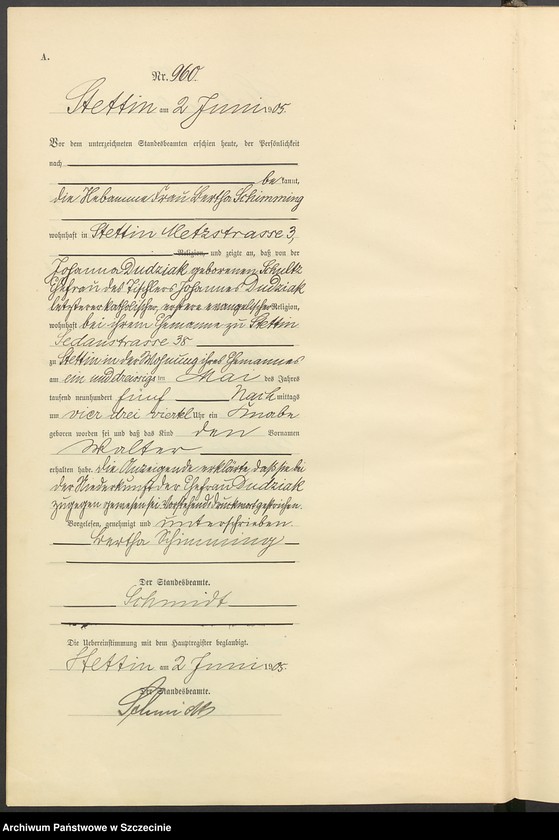 A.
Nr. 960.
Stettin am 2 Juni 1905.
Vor dem unterzeichneten Standesbeamten erschien heute, der Persönlichkeit
nach
bekannt,
die Hebamme Frau Bertha Schimming
wohnhaft in Stettin Metzstrasse 3,
Religion, und zeigte an, daß von der
Johanna Dudziak geborenen Schultz
Ehefrau des Tischlers Johannes Dudziak
letzterer katholischer, erstere evangelischer Religion,
wohnhaft bei ihrem Ehemanne zu Stettin
Sedanstrasse 38
zu Stettin in der Wohnung ihres Ehemannes
am ein und dreizigsten Mai des Jahres
tausend neunhundert fünf Nachmittags
um vier drei viertel Uhr ein Knabe
geboren worden sei und daß das Kind den Vornamen
Walter
erhalten habe. Die Anzeigende erklärte, daß sie bei
der Niederkunft der Ehefrau Dudziak
zugegen gewesen sei. Vorstehend 1 Druckwort gestrichen.
Vorgelesen, genehmigt und unterschrieben
Bertha Schimming
Der Standesbeamte.
Schmidt
Die Uebereinstimmung mit dem Hauptregister beglaubigt.
Stettin am 2 Juni 1905.
Der Standesbeamte.
Schmidt
Archiwum Państwowe w Szczecinie